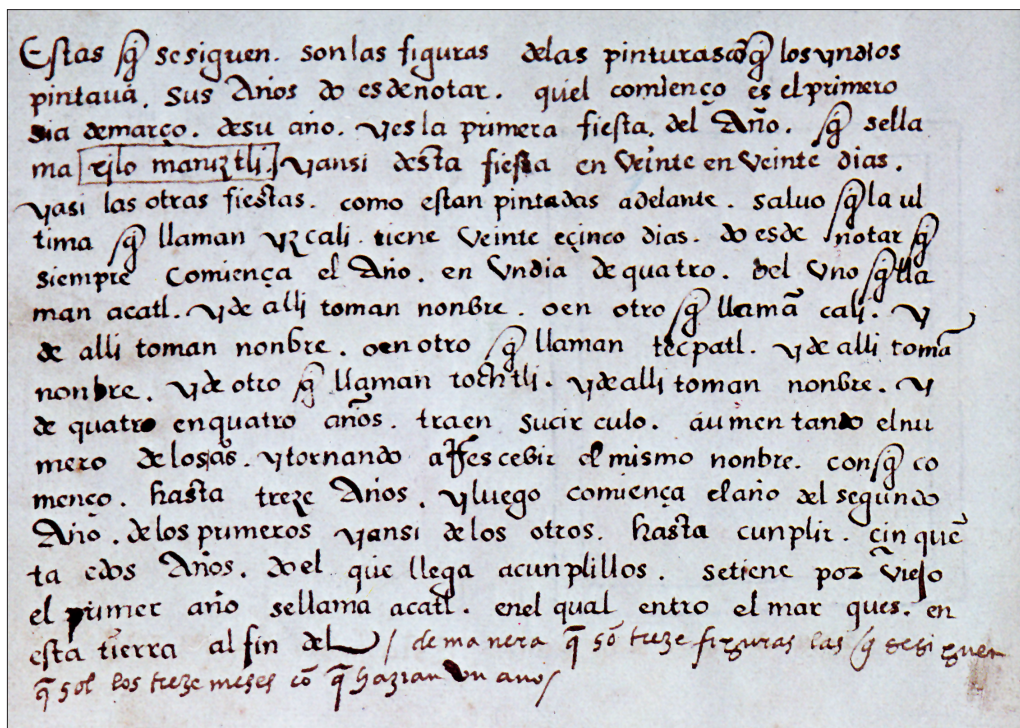 Estas q̃ sesiguen. son las figuras delas pinturas cõ q̃ los yndios
pintauã. sus Años do es de notar. quel comienço es el primero
dia de março. de su año. y es la primera fiesta. del Año. q̃ sella
ma xilo maniztli. yansi desta fiesta en veinte en veinte dias.
yasi las otras fiestas. como estan pintadas adelante. saluo q̃ la ul
tima q̃ llaman yzcali. tiene veinte eçinco dias. do es de notar q̃
siempre comiença el Año. en vn dia de quatro. del vno q̃ lla
man acatl. y de alli toman nonbre. o en otro q̃ llamã cali. y
de alli toman nonbre. o en otro q̃ llaman tecpatl. y de alli tomã
nonbre. y de otro q̃ llaman tochtli. y de alli toman nonbre. y
de quatro en quatro años. traen su circulo. aumentando el nu
mero de los años. y tornando a Resçebir el mismo nonbre. con q̃ co
menço. hasta treze Años. y luego comiença el año del segundo
Año. de los primeros yansi de los otros. hasta cunplir. çinquẽ
ta edos Años. do el que llega acunplillos. setiene por viejo
el primer año sellama acatl. enel qual entro el marques. en
esta tierra al fin del / de manera q̃ sõ treze figuras las q̃ sesiguen
q̃ sõ los treze meses cõ q̃ hazian vn ano /